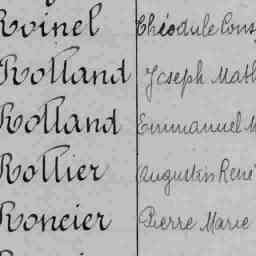 Roinel Théodule Cons
Rolland Joseph Math
Rolland Emmanuel M
Rollier Augustin René
Roncier Pierre Marie